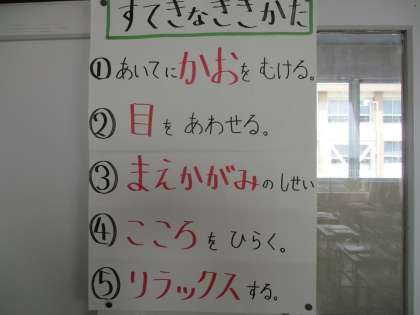 すてきなききかた
①あいてにかおをむける。
②目をあわせる。
③まえかがみのしせい
④こころをひらく。
⑤リラックスする。